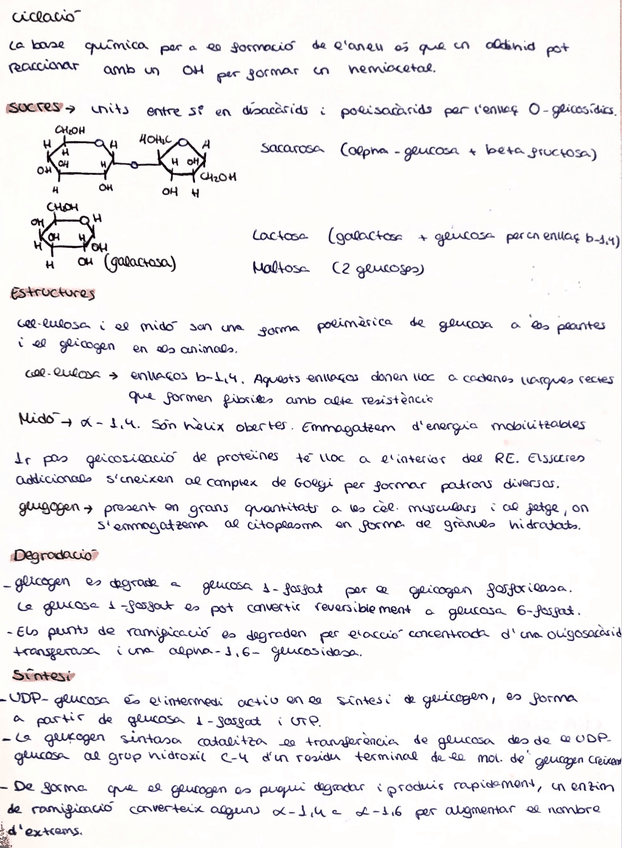 Ciclació
La base química per a la formació de l'anell és que un aldehid pot
reaccionar amb un OH per formar un hemiacetal.
Sucres → units entre si en disacàrids i polisacàrids per l'enllaç O-glicosídics.
CH₂OH
HOH₂C
H
OH
CH₂OH
Sacarosa (alpha-glucosa + beta fructosa)
CH₂OH
OH
H
(galactosa)
Lactosa (galactosa + glucosa per un enllaç b-1,4)
Maltosa (2 glucoses)
Estructures
Cel·lulosa i el midó son una forma polimèrica de glucosa a les plantes
i el glicogen en els animals.
cel·lulosa → enllaços b-1,4. Aquests enllaços donen lloc a cadenes llargues rectes
que formen fibriles amb alta resistència
Midó → α-1,4. Són hèlix obertes. Emmagatzem d'energia mobilitzables
1r pas glicosilació de proteïnes té lloc a l'interior del RE. Els sucres
addicionals s'uneixen al complex de Golgi per formar patrons diversos.
glugogen → present en grans quantitats a les cèl. musculars i al fetge, on
s'emmagatzema al citoplasma en forma de grànuls hidratats.
Degradació
- glicogen es degrada a glucosa 1-fosfat per la glicogen fosforilasa.
La glucosa 1-fosfat es pot convertir reversiblement a glucosa 6-fosfat.
- Els punts de ramificació es degraden per l'acció concentrada d'una oligosacàrid
transferasa i una alpha-1,6-glucosidasa.
Síntesi
- UDP-glucosa és l'intermedi actiu en la síntesi de glucogen, es forma
a partir de glucosa 1-fosfat i UTP.
- La glucogen sintasa catalitza la transferència de glucosa des de la UDP-
glucosa al grup hidroxil C-4 d'un residu terminal de la mol. de glucogen creixent
- De forma que el glucogen es pugui degradar i produir rapidament, un enzim
de ramificació converteix alguns α-1,4 a α-1,6 per augmentar el nombre
d'extrems.